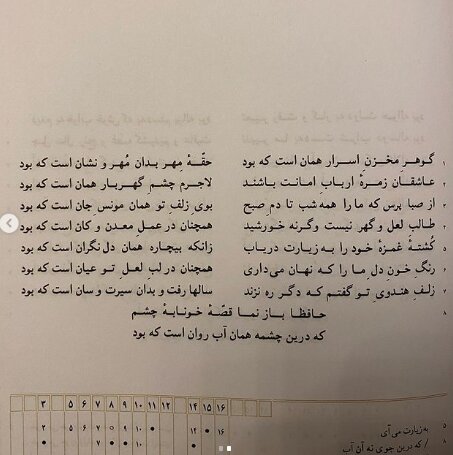 ۱ گوهرِ مخزنِ اسرار همان است که بود حقّهٔ مِهر بدان مُهر و نشان است که بود
۲ عاشقان زمرهٔ اربابِ امانت باشند لاجرم چشمِ گهربار همان است که بود
۳ از صبا پرس که ما را همه شب تا دمِ صبح بویِ زلفِ تو همان مونسِ جان است که بود
۴ طالبِ لعل و گهر نیست وگرنه خورشید همچنان در عملِ معدن و کان است که بود
۵ کُشتهٔ غمزهٔ خود را به زیارت دریاب زانکه بیچاره همان دل‌نگران است که بود
۶ رنگِ خونِ دلِ ما را که نهان می‌داری همچنان در لبِ لعلِ تو عیان است که بود
۷ زلفِ هندویِ تو گفتم که دگر ره نزند سالها رفت و بدان سیرت و سان است که بود
۸ حافظا باز نما قصّهٔ خونابهٔ چشم
که درین چشمه همان آب روان است که بود
۳ ۵ ۶ ۷ ۸ ۹ ۱۰ ۱۱ ۱۲ ۱۴ ۱۵ ۱۶
۵ به زیارت می‌آی
۸ / که درین جوی نه آن آب